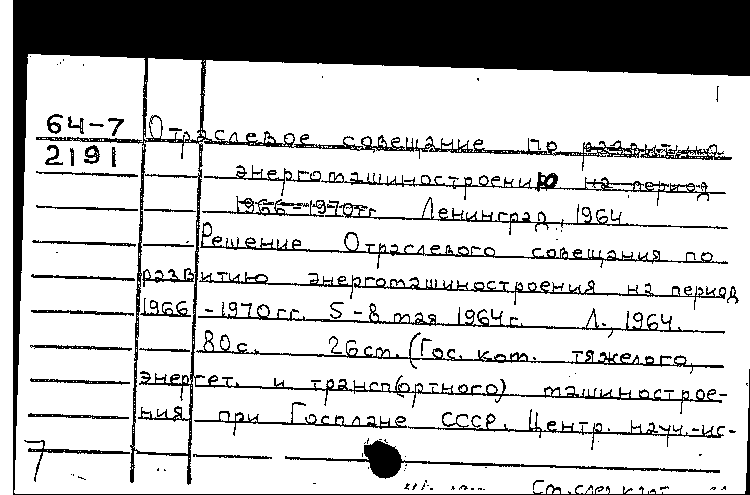 64-7 Отраслевое совещание по развитию
2191 энергомашиностроению на период
1966-1970гг. Ленинград, 1964.
Решение Отраслевого совещания по
развитию энергомашиностроения на период
1966-1970гг. 5-8 мая 1964г. Л., 1964.
80с. 26см. (Гос. ком. тяжелого,
энергет. и трансп(ортного) машинострое-
ния при Госплане СССР. Центр. науч.-ис-
7
См. след карт.